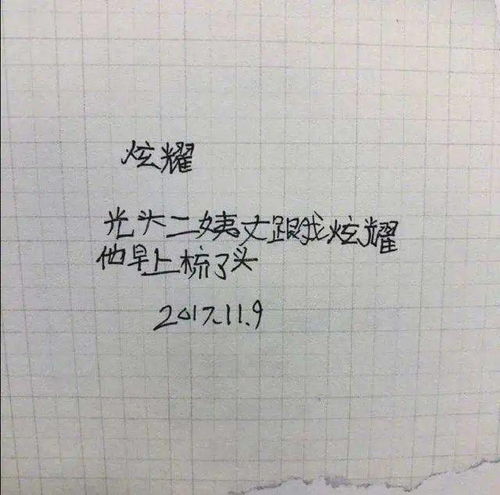 炫耀
光头二姨丈跟我炫耀
他早上梳了头
2017.11.9